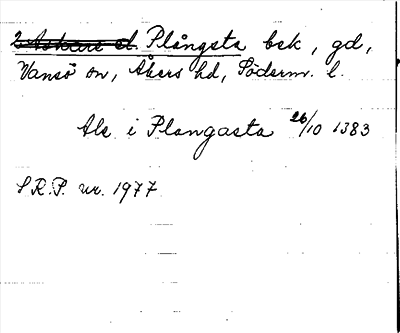 Plångsta bsk, gd,
Vansö sn, Åkers hd, Söderm. l.
Als i Plangasta 26/10 1383
S.R.P. nr. 1977